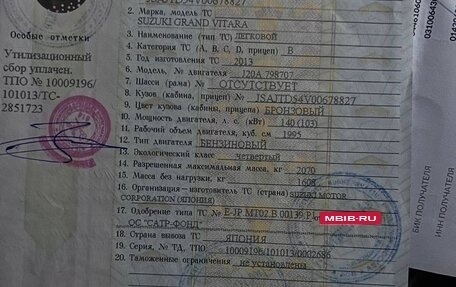 JSAJTD54V00678827
2. Марка, модель ТС
SUZUKI GRAND VITARA
3. Наименование (тип ТС) ЛЕГКОВОЙ
4. Категория ТС (A, B, C, D, прицеп) B
5. Год изготовления ТС 2013
6. Модель, № двигателя J20A 798707
7. Шасси (рама) № ОТСУТСТВУЕТ
8. Кузов (кабина, прицеп) № JSAJTD54V00678827
9. Цвет кузова (кабины, прицепа) БРОНЗОВЫЙ
10. Мощность двигателя, л. с. (кВт) 140 (103)
11. Рабочий объем двигателя, куб. см 1995
12. Тип двигателя БЕНЗИНОВЫЙ
13. Экологический класс четвертый
14. Разрешенная максимальная масса, кг 2070
15. Масса без нагрузки, кг 1608
16. Организация—изготовитель ТС (страна) SUZUKI MOTOR
CORPORATION (ЯПОНИЯ)
17. Одобрение типа ТС № E-JP.MT02.B.00139.P1
ОС "САТР-ФОНД"
18. Страна вывоза ТС ЯПОНИЯ
19. Серия, № ТД, ТПО 10009196/101013/0002686
20. Таможенные ограничения не установлены
Особые отметки
Утилизационный
сбор уплачен.
ТПО № 10009196/
101013/ТС-
2851723
MBIB-RU
БИК ПОЛУЧАТЕЛЯ
ИНН ПОЛУЧАТЕЛЯ